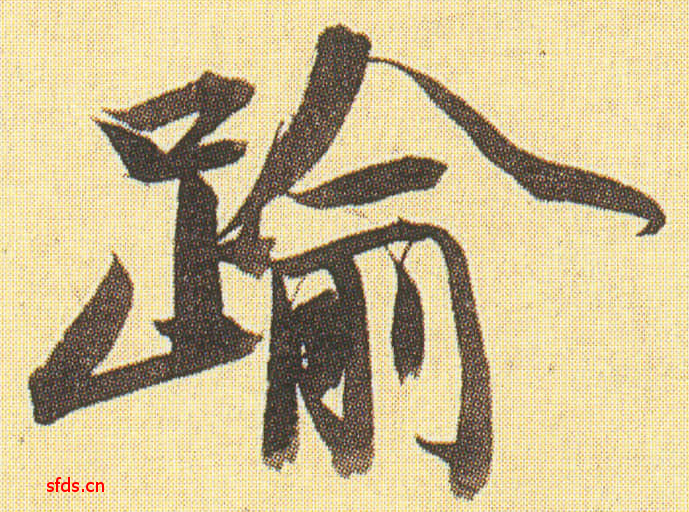 踰
sfds.cn